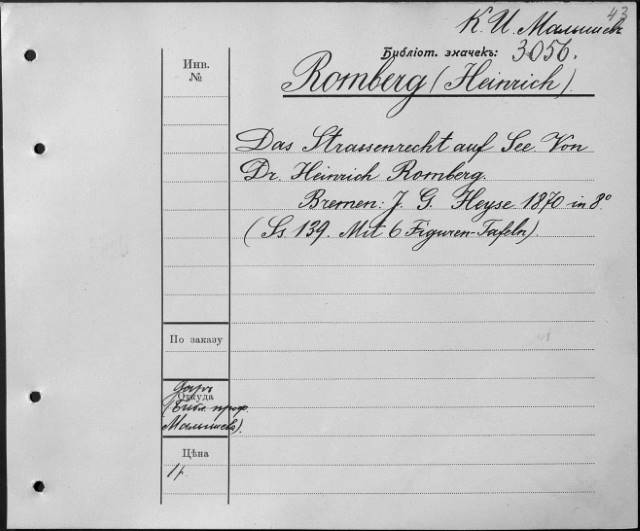 43
К. И. Малышевъ
Библіот. значекъ: 3056.
Инв.
№
Romberg (Heinrich).
Das Strassenrecht auf See. Von
Dr. Heinrich Romberg.
Bremen: J. G. Heyse 1870 in 8°
(Ss. 139. Mit 6 Figuren-Tafeln).
По заказу
Даръ
Откуда
(библ. проф.
Малышева).
Цѣна